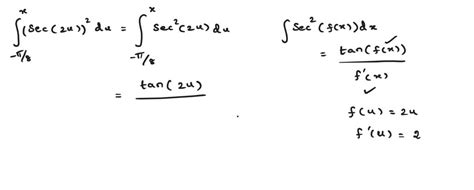 ∫_{-π/8}^{x} (sec(2u))² du = ∫_{-π/8}^{x} sec²(2u) du
= tan(2u)
∫ sec²(f(x)) dx
= tan(f(x)) / f'(x)
f(u) = 2u
f'(u) = 2